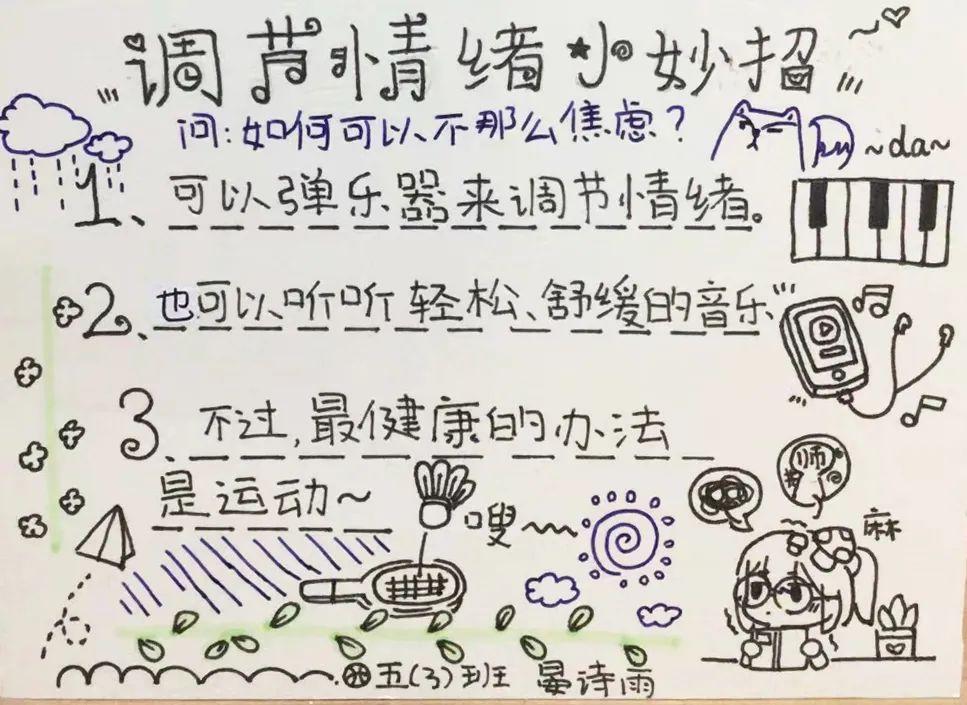 调节情绪小妙招
问:如何可以不那么焦虑?
~da~
1、可以弹乐器来调节情绪。
2、也可以听听轻松、舒缓的音乐
3、不过,最健康的办法
是运动~
嗖
师
麻
五(3)班 晏诗雨